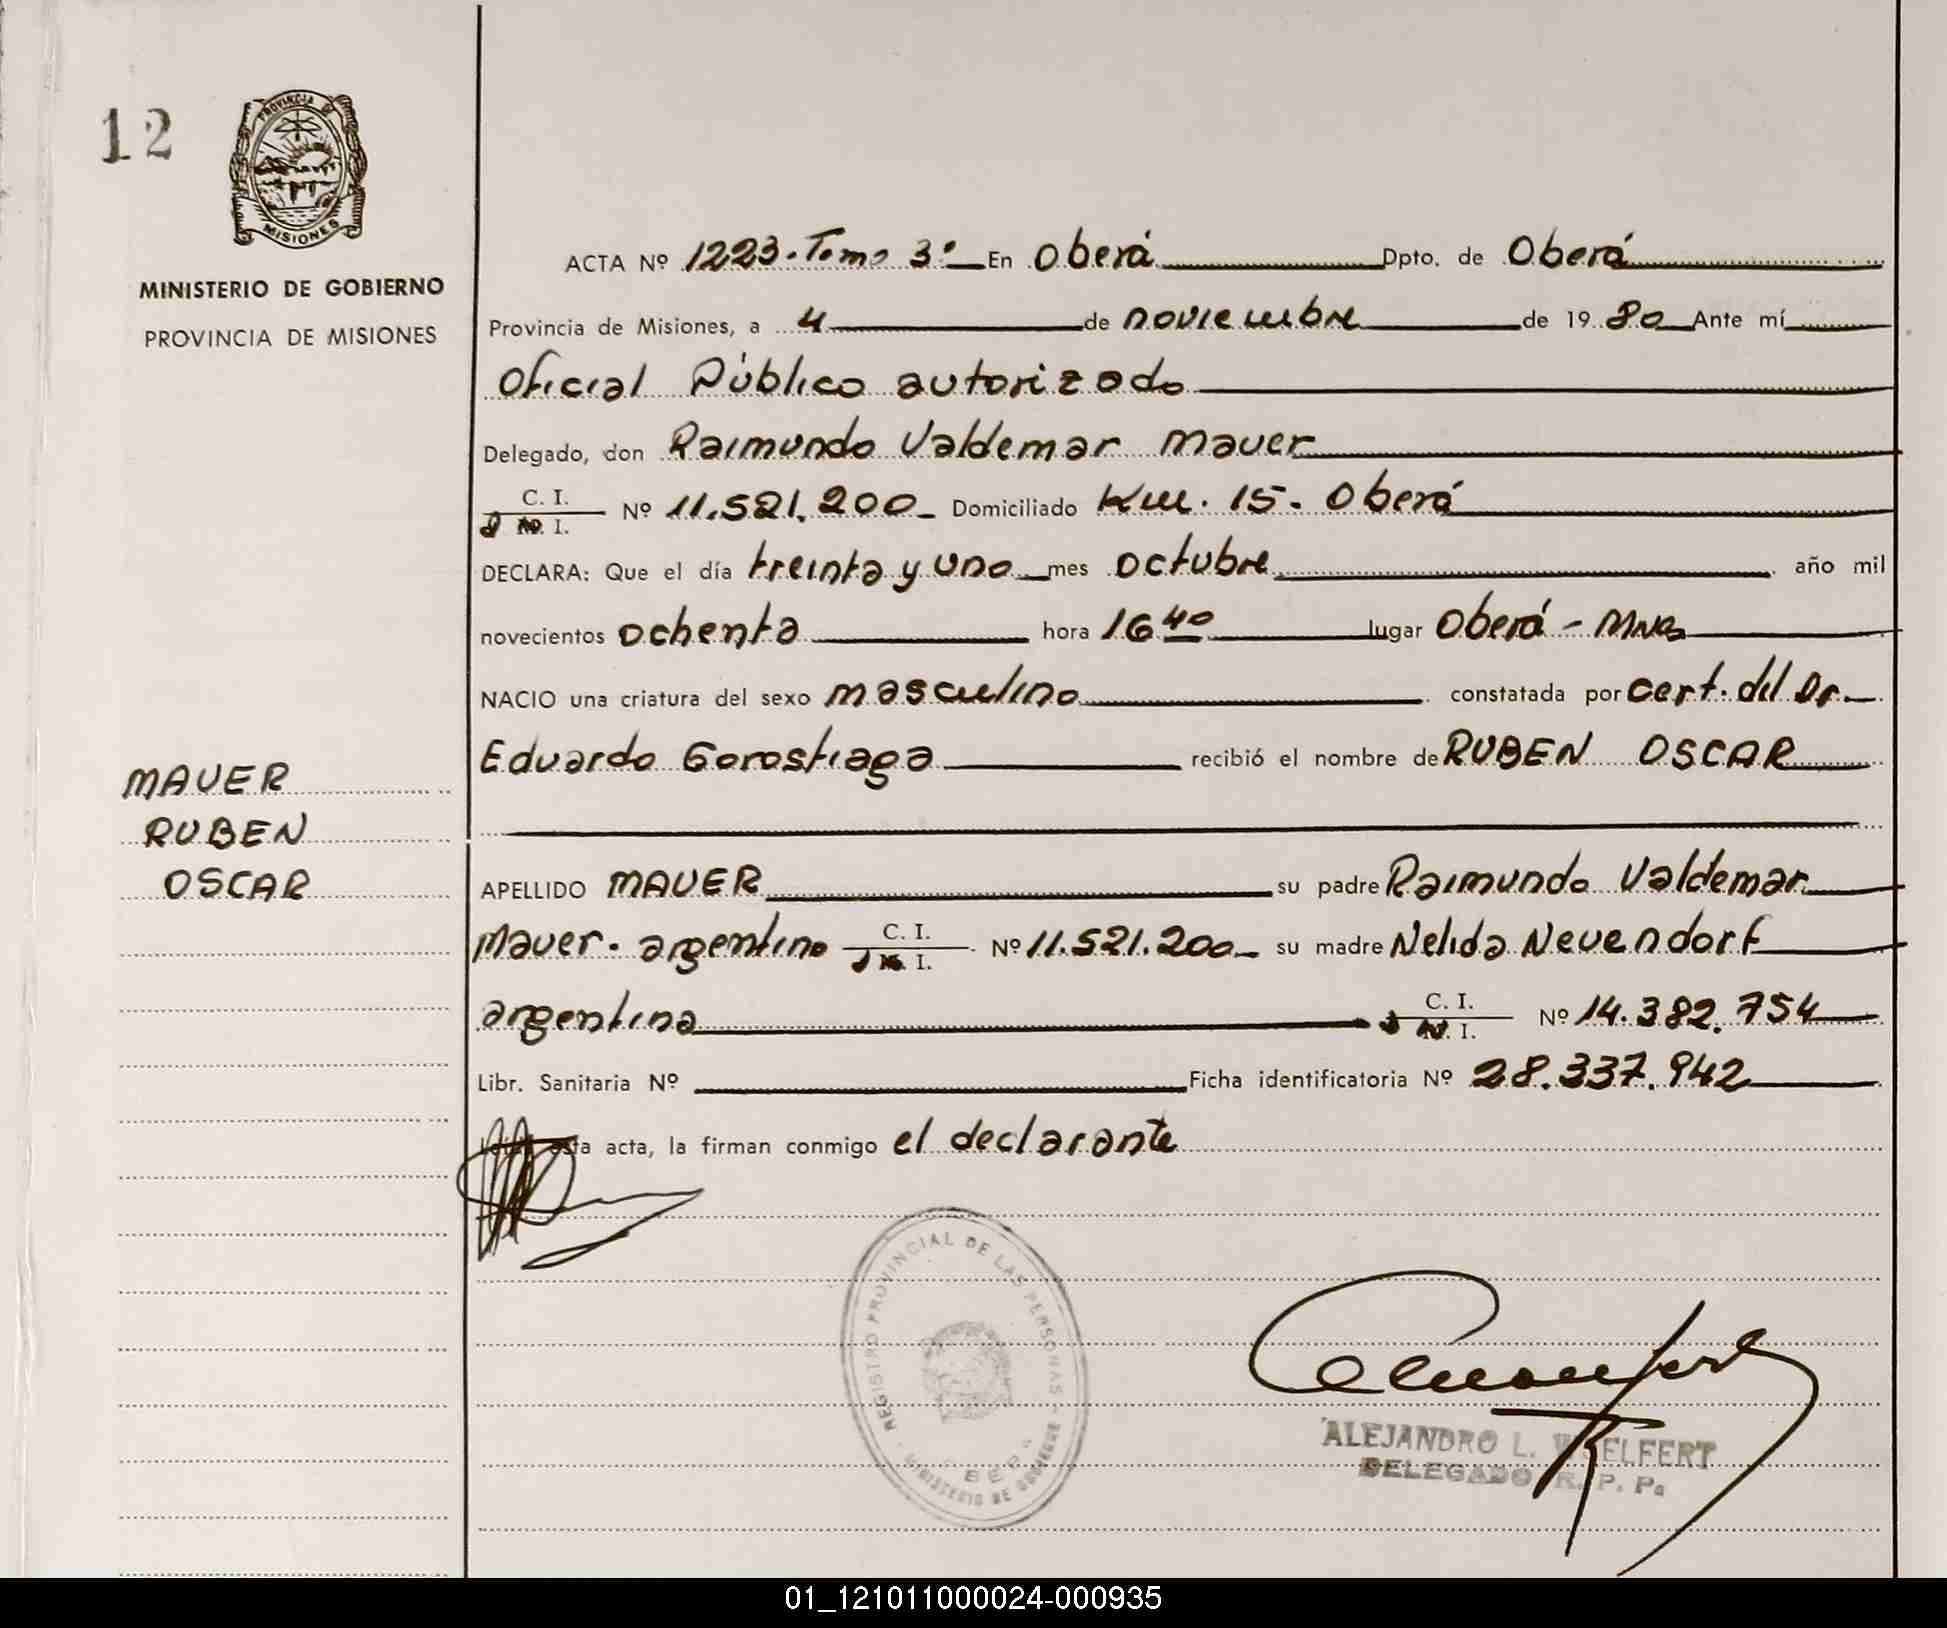 12
PROVINCIA DE
MISIONES
MINISTERIO DE GOBIERNO
PROVINCIA DE MISIONES
MAUER
RUBEN
OSCAR
ACTA Nº 1223. Tomo 3º En Oberá Dpto. de Oberá
Provincia de Misiones, a 4 de noviembre de 1980 Ante mí
Oficial Público autorizado
Delegado, don Raimundo Valdemar Mauer
C. I.
I. Nº 11.521.200 Domiciliado Km. 15. Oberá
DECLARA: Que el día treinta y uno mes octubre año mil
novecientos ochenta hora 16 40 lugar Oberá - Mnes
NACIO una criatura del sexo masculino constatada por cert. del Dr.
Eduardo Gorostiaga recibió el nombre de RUBEN OSCAR
APELLIDO MAUER su padre Raimundo Valdemar
Mauer. argentino C. I.
I. Nº 11.521.200 su madre Nelida Neuendorf
argentina C. I.
I. Nº 14.382.754
Libr. Sanitaria Nº Ficha identificatoria Nº 28.337.942
esta acta, la firman conmigo el declarante
REGISTRO PROVINCIAL DE LAS PERSONAS
MINISTERIO DE GOBIERNO
ALEJANDRO L. WOELFERT
DELEGADO R. P. Ps
01_121011000024-000935